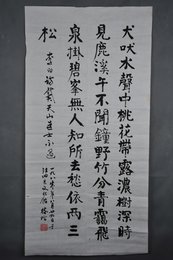 犬吠水聲中桃花帶露濃樹深時
見鹿溪午不聞鐘野竹分青靄飛
泉掛碧峯無人知所去愁依兩三
松 李白訪戴天山道士不遇